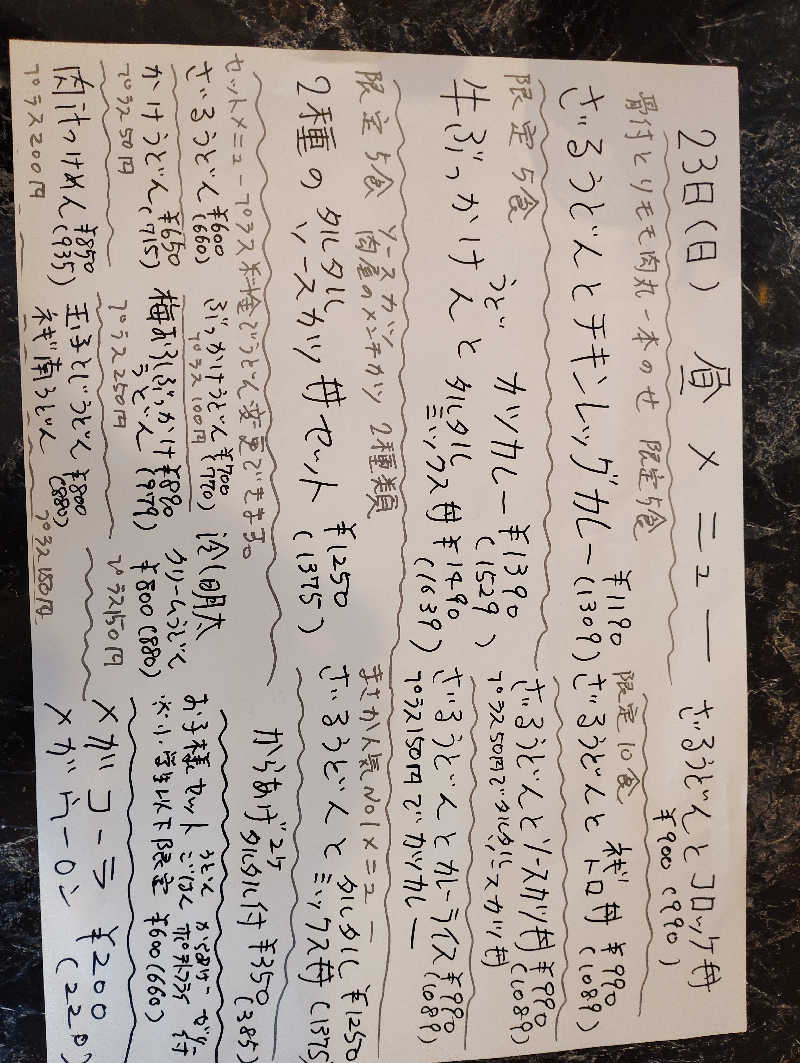 23日(日) 昼メニュー
骨付とりモモ肉丸一本のせ 限定5食
ざるうどんとチキンレッグカレー ¥1190
(1309)
限定5食
牛ぶっかけうどんと カツカレー ¥1390
(1529)
タルタルミックス丼 ¥1490
(1639)
限定5食 ソースカツ
肉屋のメンチカツ 2種類
2種の タルタルソースカツ丼セット ¥1250
(1375)
セットメニュープラス料金でうどん変更できます。
ざるうどん ¥600
(660)
ぶっかけうどん ¥700
プラス100円 (770)
冷明太
クリームうどん
¥800 (880)
プラス150円
かけうどん ¥650
プラス50円 (715)
梅おろしぶっかけ ¥890
うどん (979)
プラス250円
肉汁つけめん ¥850
プラス200円 (935)
玉子とじうどん ¥800
ねぎ南うどん (880)
プラス150円
ざるうどんとコロッケ丼
¥900 (990)
限定10食
ざるうどんと ねぎトロ丼 ¥990
(1089)
ざるうどんとソースカツ丼 ¥990
プラス50円でタルタルソースカツ丼 (1089)
ざるうどんとカレーライス ¥990
プラス150円でカツカレー (1089)
まさか人気NO1メニュー
ざるうどんと タルタルミックス丼 ¥1250
(1375)
からあげ2ケ タルタル付 ¥350
(385)
お子様セット うどん からあげ
ごはん ポテトフライ 付
※小学生以下限定 ¥600 (660)
メガコーラ ¥200
(220)